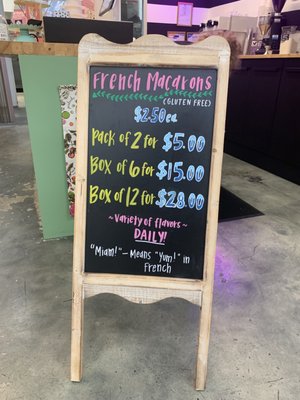 French Macarons
(GLUTEN FREE)
$2.50ea
Pack of 2 for $5.00
Box of 6 for $15.00
Box of 12 for $28.00
~Variety of flavors~
DAILY!
"Miam!" - Means "Yum!" in
French